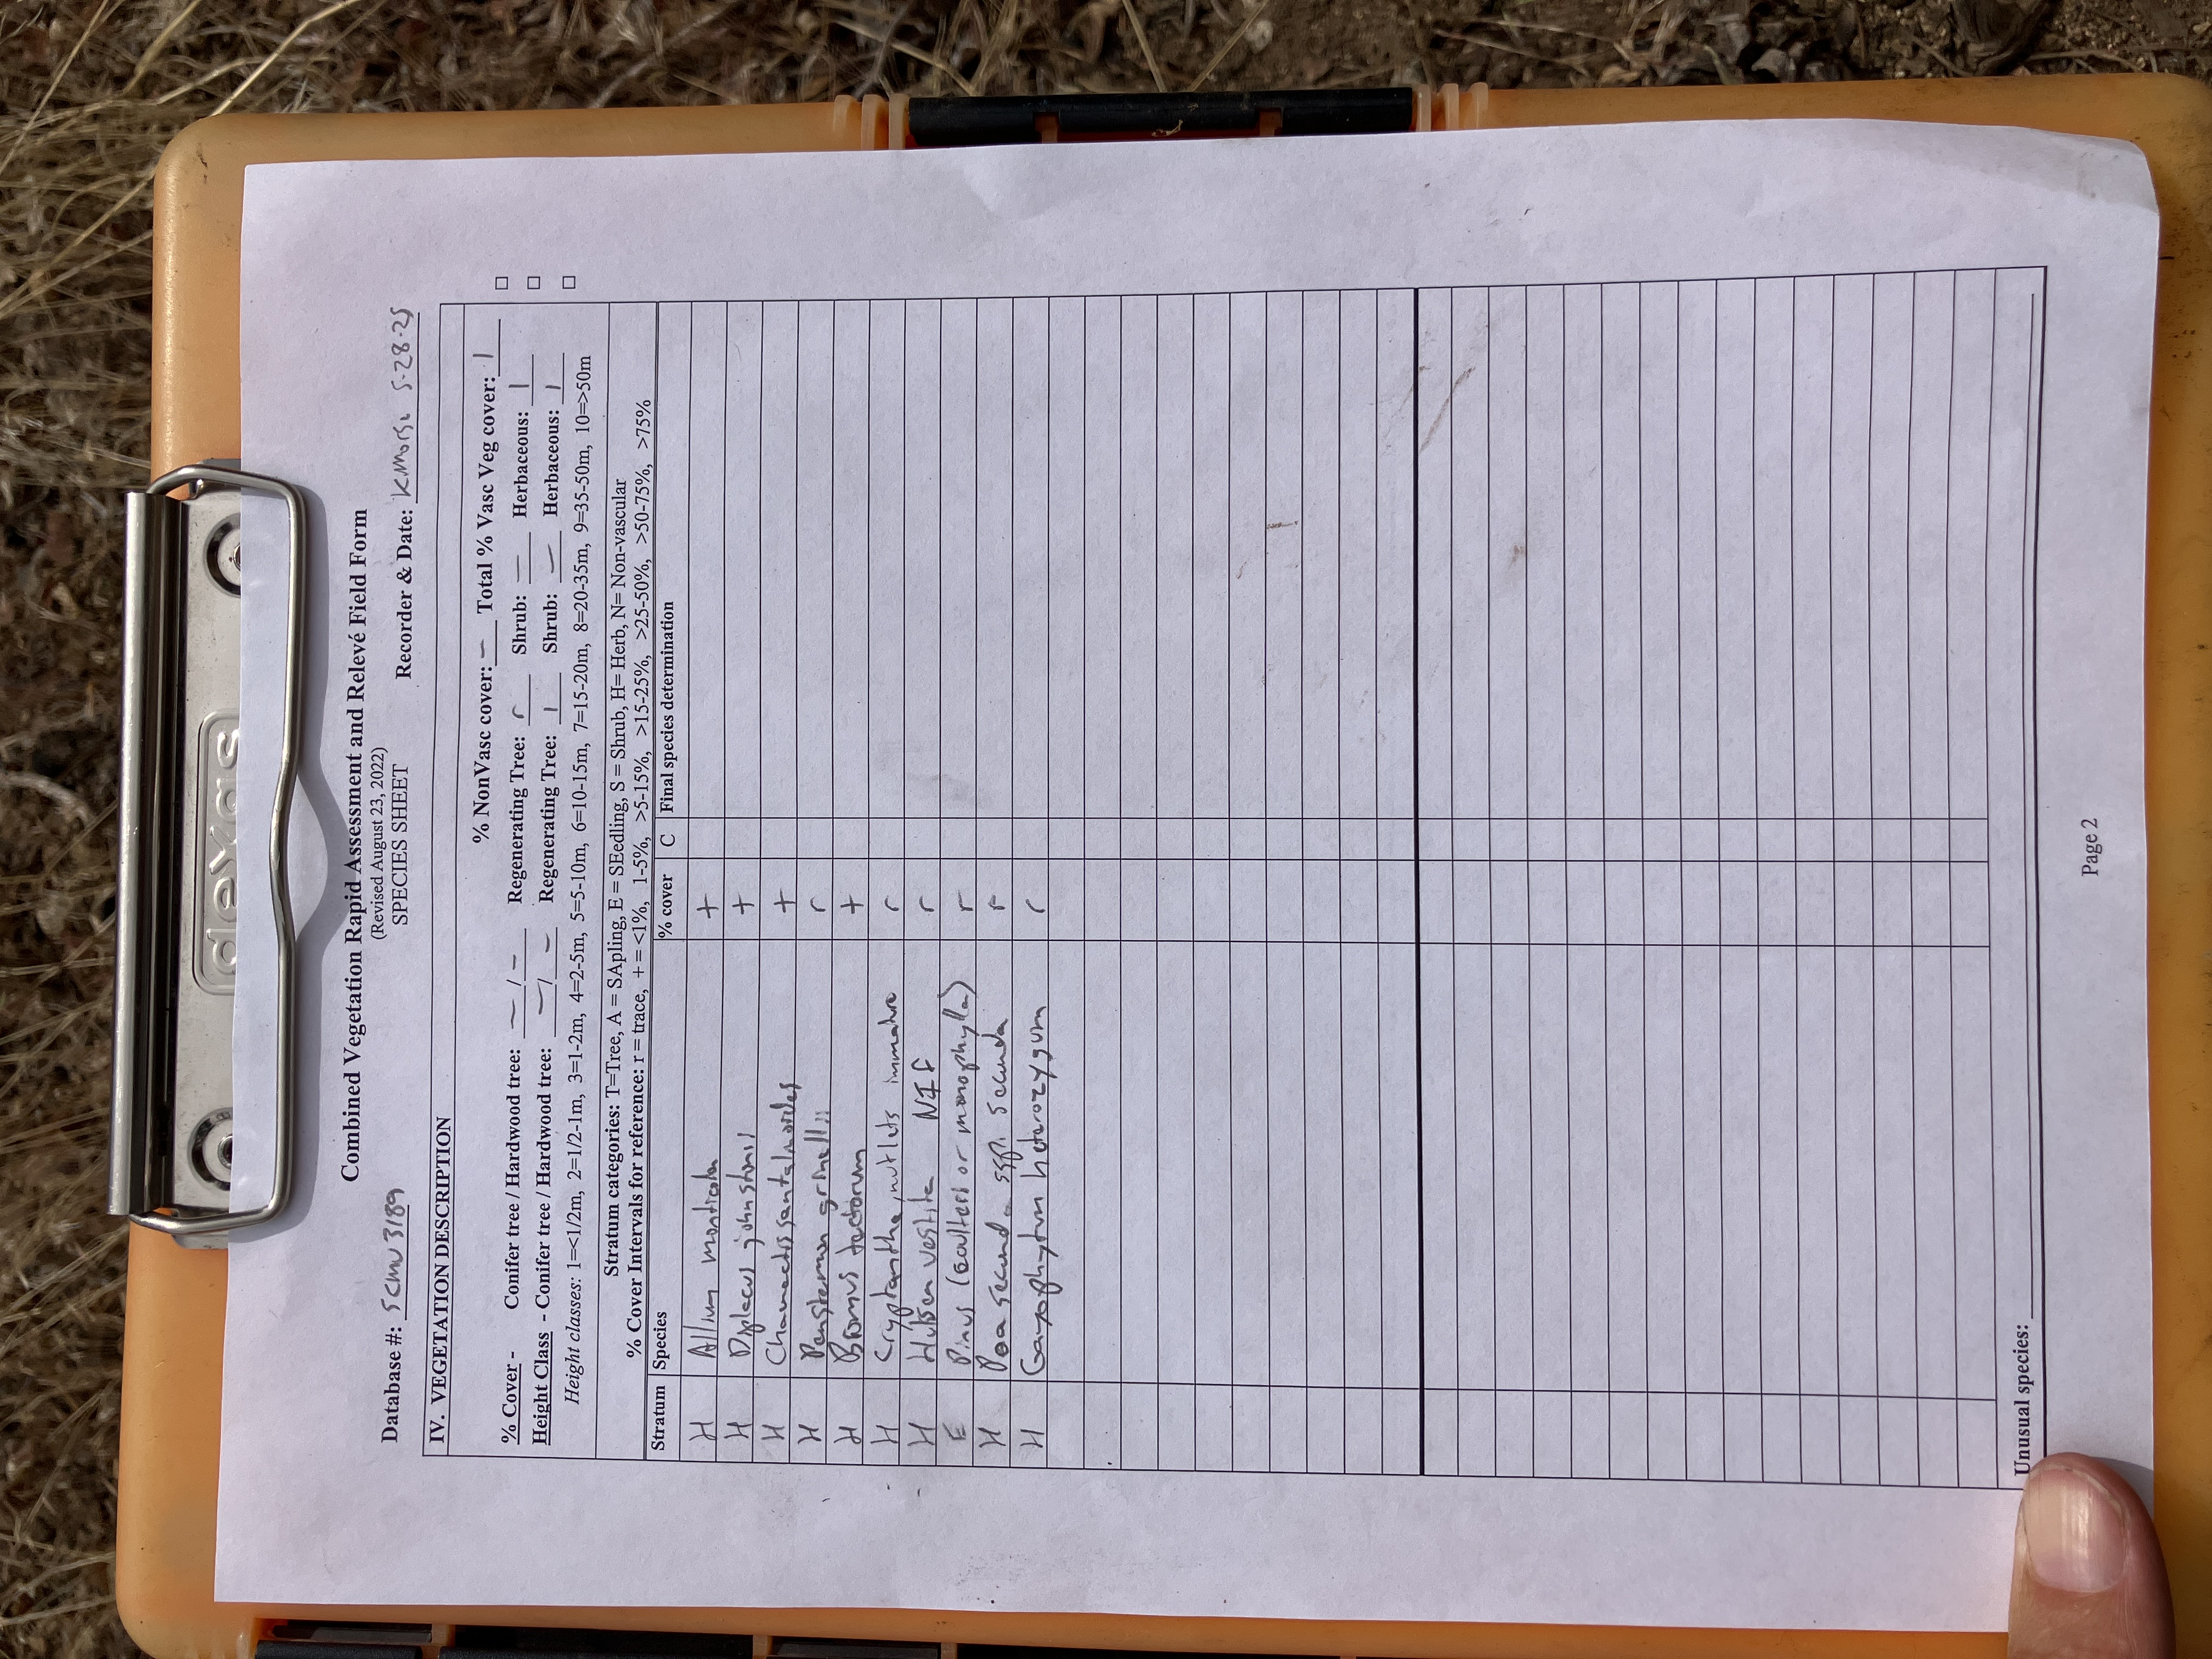 dexas
Combined Vegetation Rapid Assessment and Relevé Field Form
(Revised August 23, 2022)
SPECIES SHEET
Database #: SCMU 3189 Recorder & Date: K.Morse 5-28-25
IV. VEGETATION DESCRIPTION
% NonVasc cover: – Total % Vasc Veg cover: 1 □
% Cover - Conifer tree / Hardwood tree: – / – Regenerating Tree: r Shrub: – Herbaceous: 1 □
Height Class - Conifer tree / Hardwood tree: – / – Regenerating Tree: 1 Shrub: – Herbaceous: 1 □
Height classes: 1=<1/2m, 2=1/2-1m, 3=1-2m, 4=2-5m, 5=5-10m, 6=10-15m, 7=15-20m, 8=20-35m, 9=35-50m, 10=>50m
Stratum categories: T=Tree, A = SApling, E = SEedling, S = Shrub, H= Herb, N= Non-vascular
% Cover Intervals for reference: r = trace, + = <1%, 1-5%, >5-15%, >15-25%, >25-50%, >50-75%, >75%
Stratum Species % cover C Final species determination
H Allium monticola +
H Diplacus johnstonii +
H Chaenactis santolinoides +
H Penstemon grinellii r
H Bromus tectorum +
H Cryptantha, nutlets immature r
H Hulsea vestita NIF r
E Pinus (coulteri or monophylla) r
H Poa secunda ssp. secunda r
H Gayophytum heterozygum r
Unusual species:
Page 2